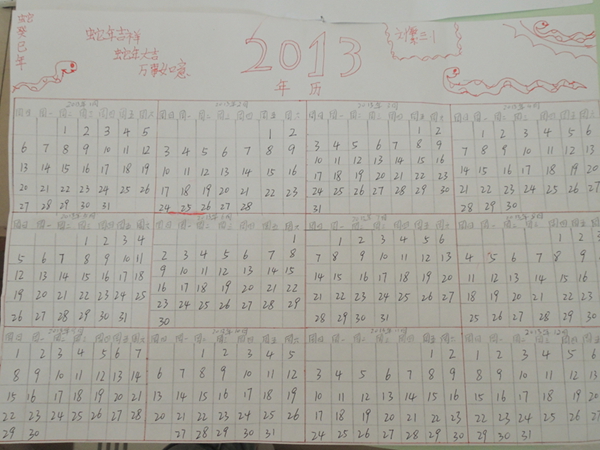 蛇癸巳年
蛇年吉祥
蛇年大吉
万事如意
2013
年历
2013年1月
周日 周一 周二 周三 周四 周五 周六
1 2 3 4 5
6 7 8 9 10 11 12
13 14 15 16 17 18 19
20 21 22 23 24 25 26
27 28 29 30 31
2013年2月
周日 周一 周二 周三 周四 周五 周六
1 2
3 4 5 6 7 8 9
10 11 12 13 14 15 16
17 18 19 20 21 22 23
24 25 26 27 28
2013年3月
周日 周一 周二 周三 周四 周五 周六
1 2
3 4 5 6 7 8 9
10 11 12 13 14 15 16
17 18 19 20 21 22 23
24 25 26 27 28 29 30
31
2013年4月
周日 周一 周二 周三 周四 周五 周六
1 2 3 4 5 6
7 8 9 10 11 12 13
14 15 16 17 18 19 20
21 22 23 24 25 26 27
28 29 30
2013年5月
周日 周一 周二 周三 周四 周五 周六
1 2 3 4
5 6 7 8 9 10 11
12 13 14 15 16 17 18
19 20 21 22 23 24 25
26 27 28 29 30 31
2013年6月
周日 周一 周二 周三 周四 周五 周六
1
2 3 4 5 6 7 8
9 10 11 12 13 14 15
16 17 18 19 20 21 22
23 24 25 26 27 28 29
30
2013年7月
周日 周一 周二 周三 周四 周五 周六
1 2 3 4 5 6
7 8 9 10 11 12 13
14 15 16 17 18 19 20
21 22 23 24 25 26 27
28 29 30 31
2013年8月
周日 周一 周二 周三 周四 周五 周六
1 2 3
4 5 6 7 8 9 10
11 12 13 14 15 16 17
18 19 20 21 22 23 24
25 26 27 28 29 30 31
2013年9月
周日 周一 周二 周三 周四 周五 周六
1 2 3 4 5 6 7
8 9 10 11 12 13 14
15 16 17 18 19 20 21
22 23 24 25 26 27 28
29 30
2013年10月
周日 周一 周二 周三 周四 周五 周六
1 2 3 4 5
6 7 8 9 10 11 12
13 14 15 16 17 18 19
20 21 22 23 24 25 26
27 28 29 30 31
2013年11月
周日 周一 周二 周三 周四 周五 周六
1 2
3 4 5 6 7 8 9
10 11 12 13 14 15 16
17 18 19 20 21 22 23
24 25 26 27 28 29 30
2013年12月
周日 周一 周二 周三 周四 周五 周六
1 2 3 4 5 6 7
8 9 10 11 12 13 14
15 16 17 18 19 20 21
22 23 24 25 26 27 28
29 30 31